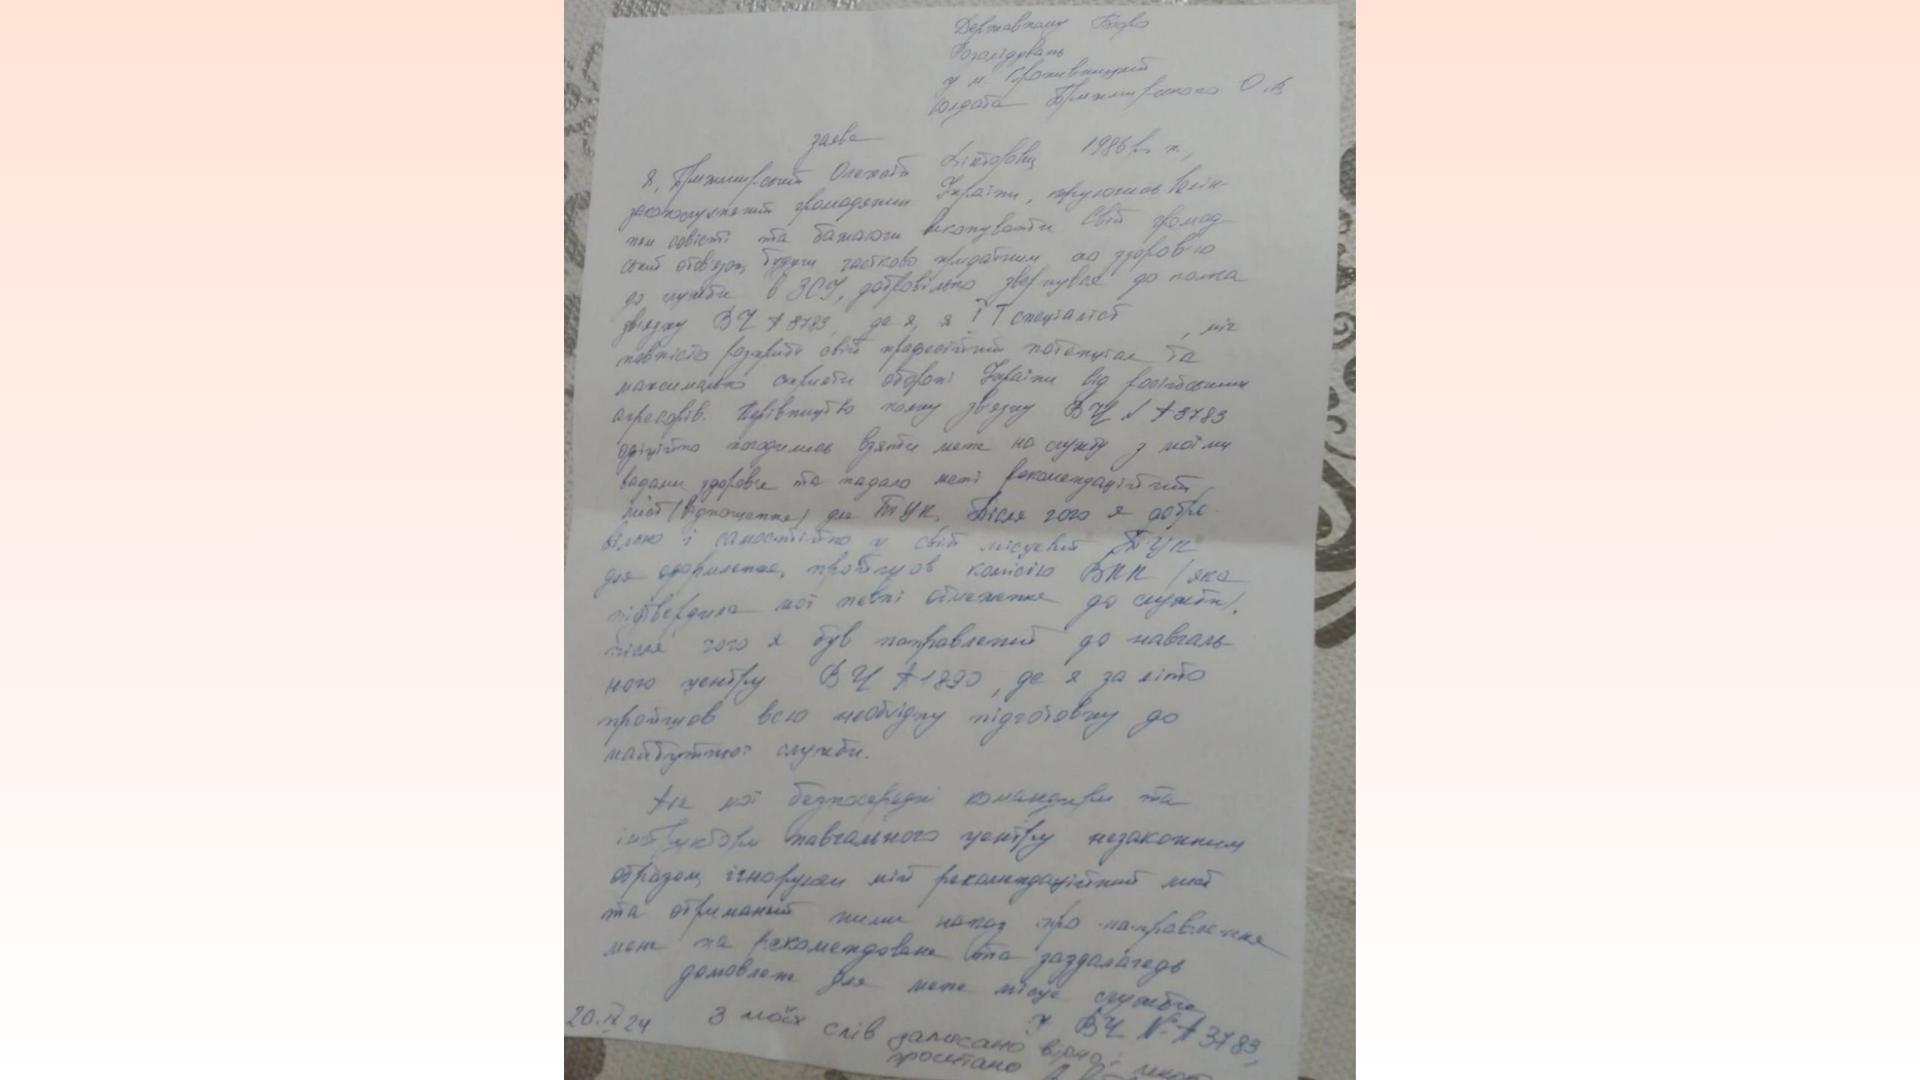 Державному Бюро
Розслідувань
у м. Кропивницький
солдата О.В
заява
Я, Олексій Вікторович 1986 р. н.,
законослухняний громадянин України, керуючись велін-
ням совісті та бажаючи виконувати свій громад
ський обов'язок, будучи частково придатним за здоров'ю
до служби в ЗСУ, добровільно звернувся до полка
зв'язку ВЧ А 3783, де я, я ІТ спеціаліст, міг
повністю розкрити свій професійний потенціал та
максимально сприяти обороні України від російських
агресорів. Керівництво полку зв'язку ВЧ А 3783
офіційно погодились взяти мене на службу з моїми
вадами здоровя та надало мені рекомендаційний
лист (відношення) для ТЦК. Після чого я добро-
вільно і самостійно у свій місцевий ТЦК
для оформлення, пройшов комісію ВЛК (яка
підтвердила мої певні обмеження до служби),
після чого я був направлений до навчаль-
ного центру ВЧ А 1890, де я за літо
пройшов всю необхідну підготовку до
майбутньої служби.
Але мої безпосередні командири та
інструктори навчального центру незаконним
образом, ігноруючи мій рекомендаційний лист
та отриманий ними наказ про направлення
мене на рекомендоване та заздалегідь
домовлене для мене місце служби
у ВЧ № А 3783,
20.IX 24 З моїх слів записано вірно,
прочитано